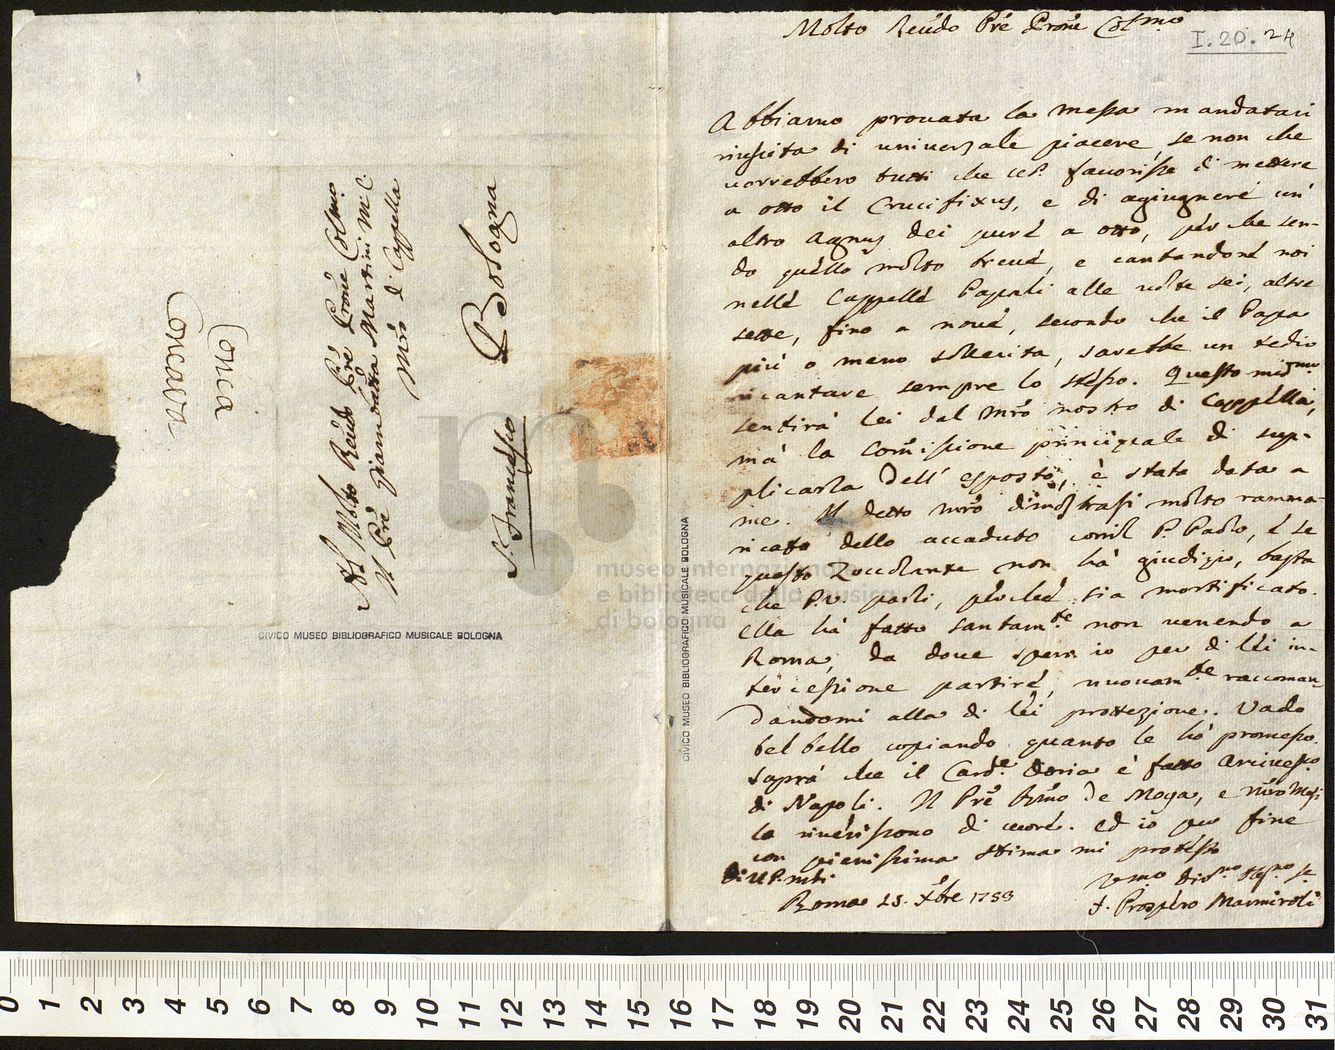 Molto Reu͂do Prē Prōne Colmo
I.20.24
Abbiamo prouata la Messa mandataci
riuscita di uniuersale piacere, se non che
uorrebbero tutti che V.P. fauorisse di mettere
a otto il Crucifixus, e di agiugnere un'
altro Agnus Dei pure a otto, per che sen-
do quello molto breue, e cantandone noi
nelle Cappelle Papali alle uolte sei, altre
sette, fino a noue, secondo che il Papa
più o meno sollecita, sarebbe un tedio
ricantare sempre lo stesso. Questo medmo
sentirà lei dal Mrō nostro di Cappella,
mà la Comissione principale di sup-
plicarla dell' esposto, è stata data a
me. Il detto Mrō dimostrasi molto ramma-
ricato dello accaduto con il P. Paolo, e se
questo Zoccolante non hà giudizio, basta
che P.V. parli, perche sia mortificato.
Ella hà fatto santamte non uenendo a
Roma, da doue spero io per di Lei in-
tercessione partire, nuouamte raccoman-
dandomi alla di Lei protezione. Vado
bel bello copiando quanto le hò promesso.
Saprà che il Carde Doria è fatto Arciuesco
di Napoli. Il Prē de Moya, e
la riueriscono di cuore. Ed io per fine
con pienissima stima mi protesto
Di V.P. M.
Roma 1753
F. Prospero Marmiroli
Al Molto Reu͂do Prē Prōne Colmo
Il Prē Giambatta Martini M. C.
Mrō di Cappella
Bologna
S. Francesco
CIVICO MUSEO BIBLIOGRAFICO MUSICALE BOLOGNA
CIVICO MUSEO BIBLIOGRAFICO MUSICALE BOLOGNA
museo internazionale
e biblioteca della musica
di bologna
0 1 2 3 4 5 6 7 8 9 10 11 12 13 14 15 16 17 18 19 20 21 22 23 24 25 26 27 28 29 30 31